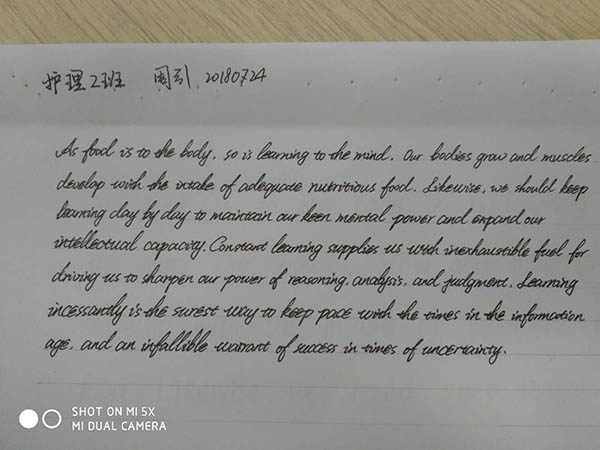 护理2班 周引 20180724
As food is to the body, so is learning to the mind. Our bodies grow and muscles
develop with the intake of adequate nutritious food. Likewise, we should keep
learning day by day to maintain our keen mental power and expand our
intellectual capacity. Constant learning supplies us with inexhaustible fuel for
driving us to sharpen our power of reasoning, analysis, and judgment. Learning
incessantly is the surest way to keep pace with the times in the information
age, and an infallible warrant of success in times of uncertainty.
SHOT ON MI 5X
MI DUAL CAMERA